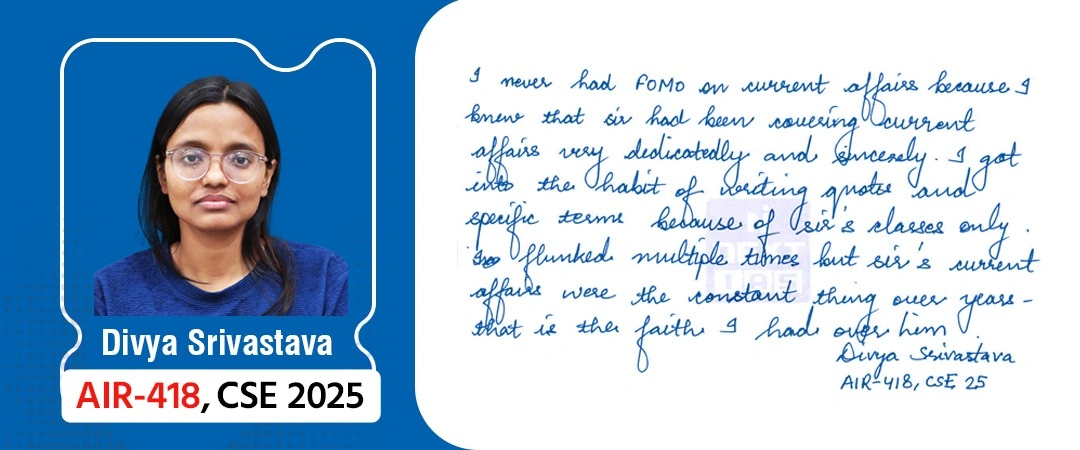 Divya Srivastava
AIR-418, CSE 2025
I never had FOMO on current affairs because I
knew that sir had been covering current
affairs very dedicatedly and sincerely. I got
into the habit of writing quotes and
specific terms because of sir's classes only.
I flunked multiple times but sir's current
affairs were the constant thing over years-
that is the faith I had over him.
Divya Srivastava
AIR-418, CSE 25